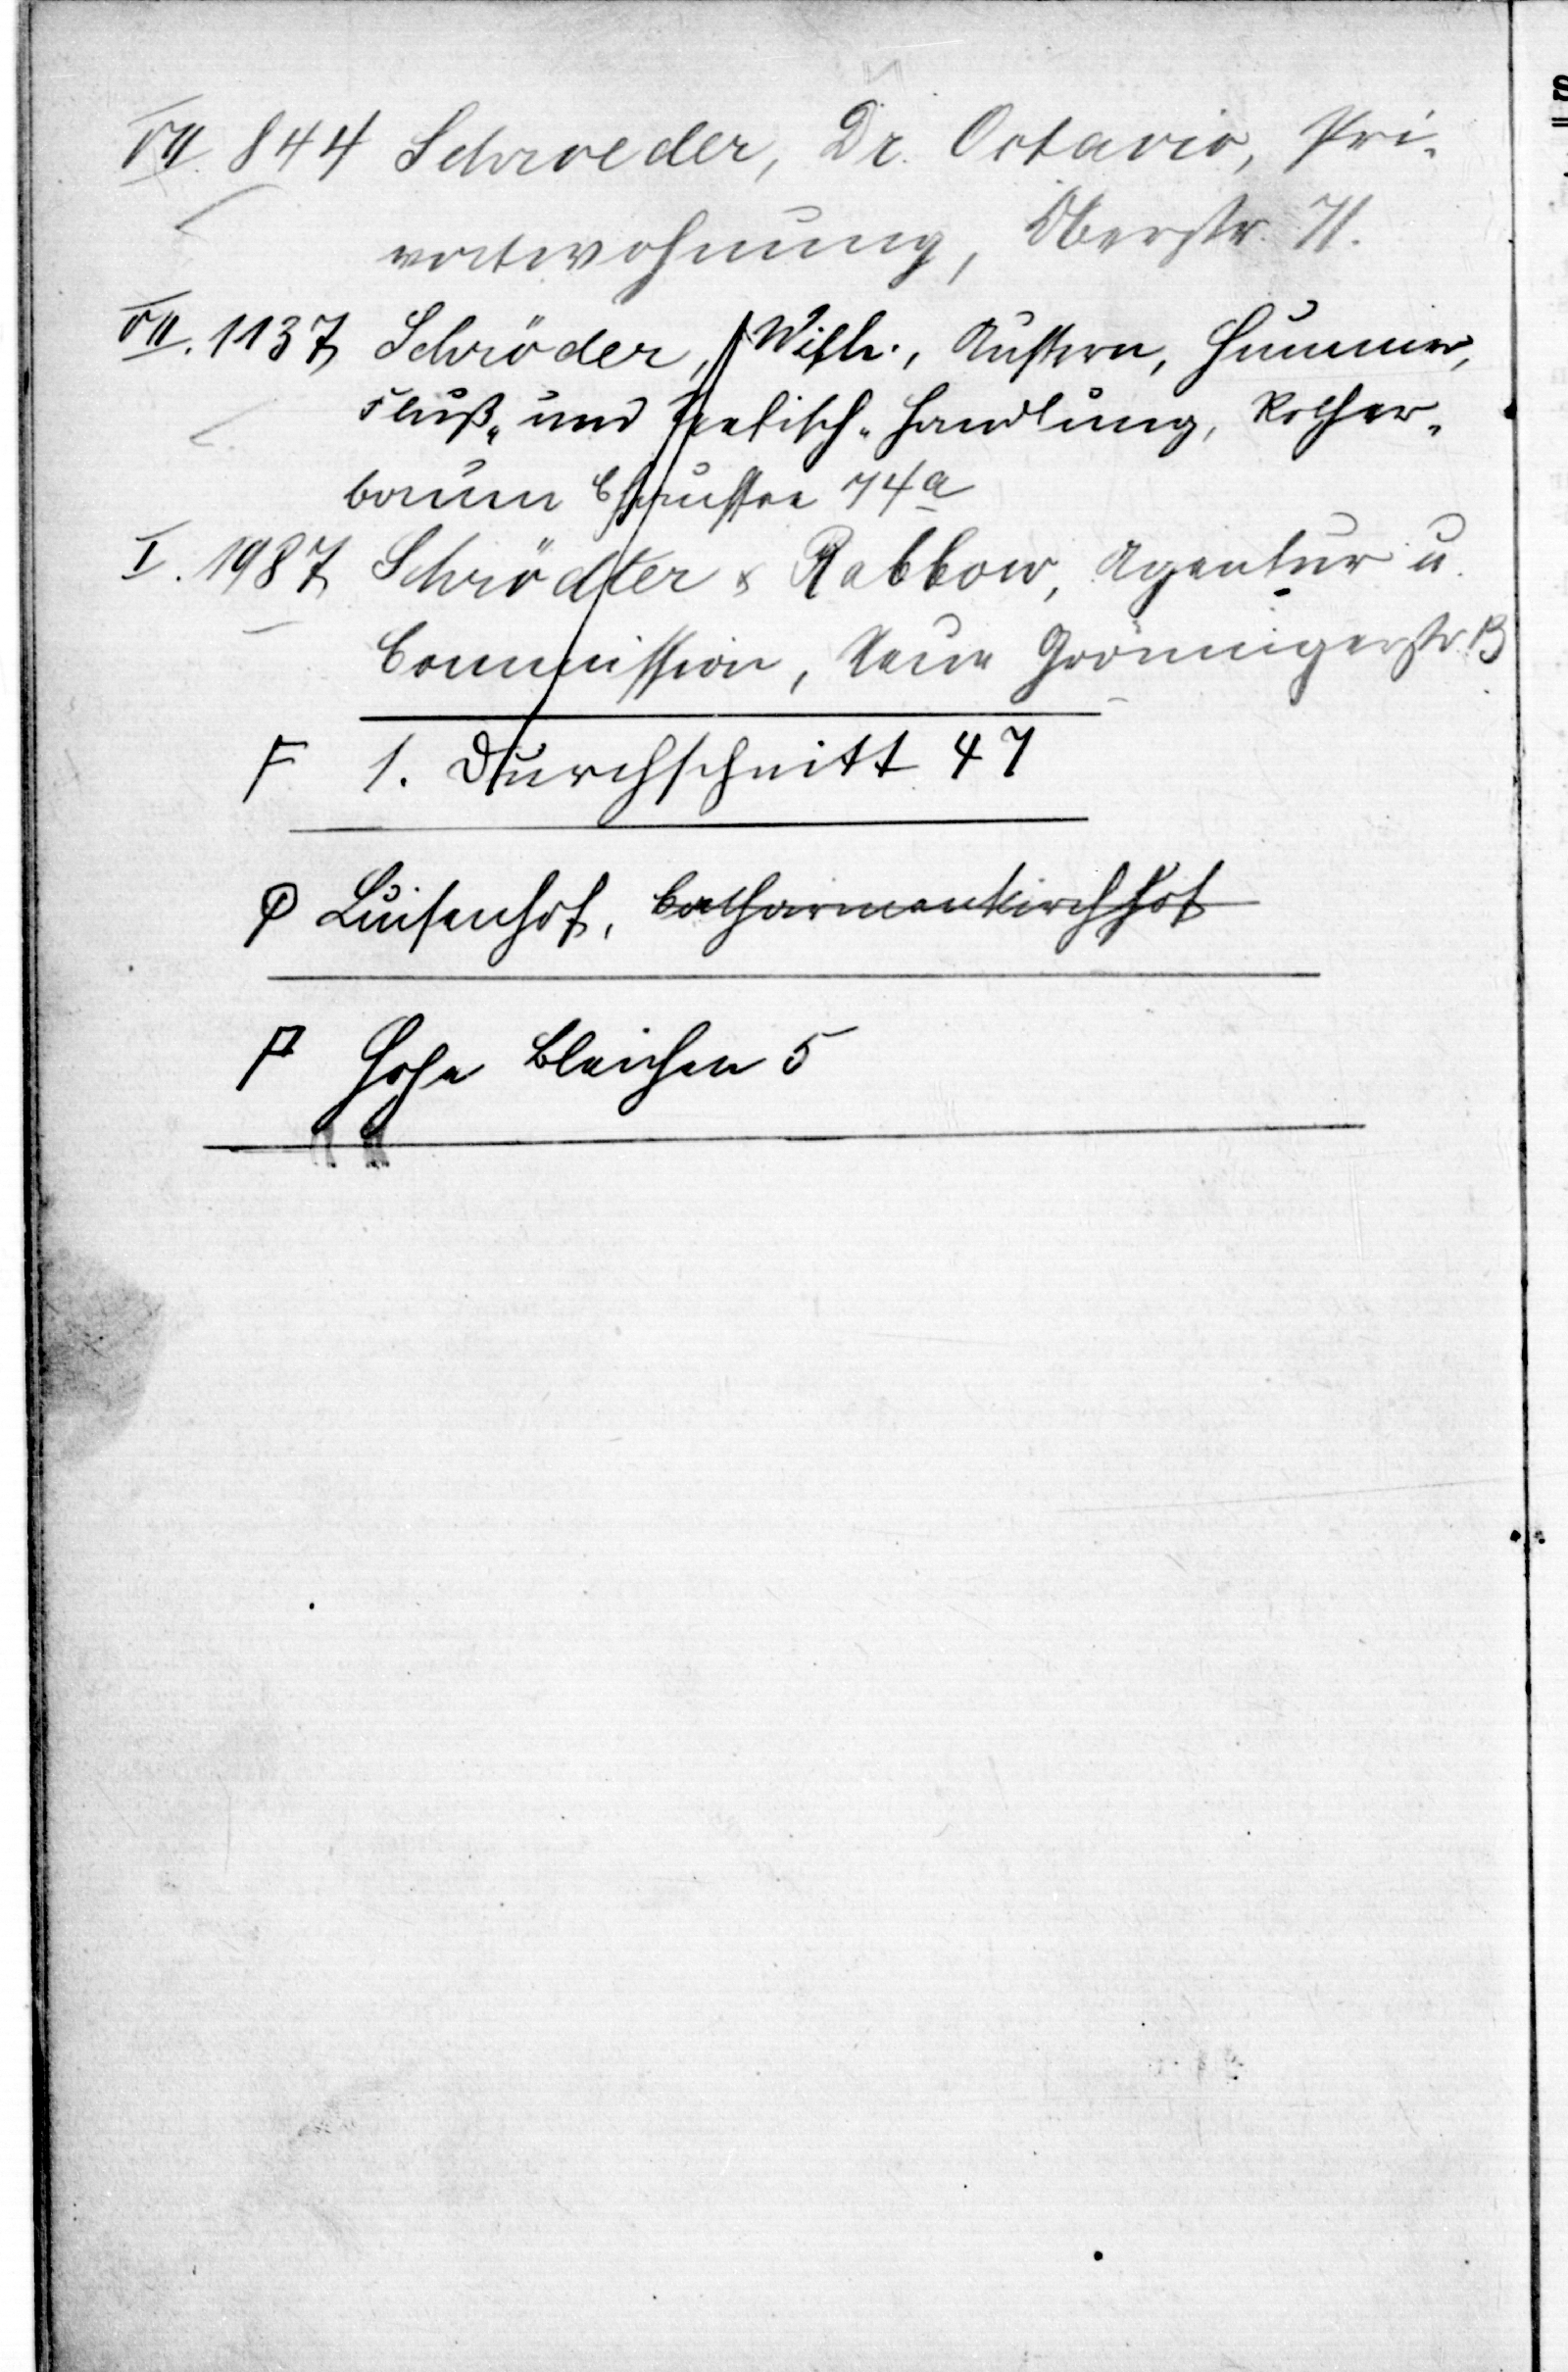 VII. 844 Schroeder, Dr. Octavio, Pri-
vatwohnung, Oberstr. 71.
VII. 1137 Schröder, Wilh., Austern, Hummer,
Fluß- und Seefisch-Handlung, Rother-
baum Chaussee 74a
I. 1987 Schrödter & Rabbow, Agentur u.
Commission, Neue Gröningerstr. 13
F 1. Durchschnitt 47
Luisenhof, Catharinenkirchhof
Hohe Bleichen 5